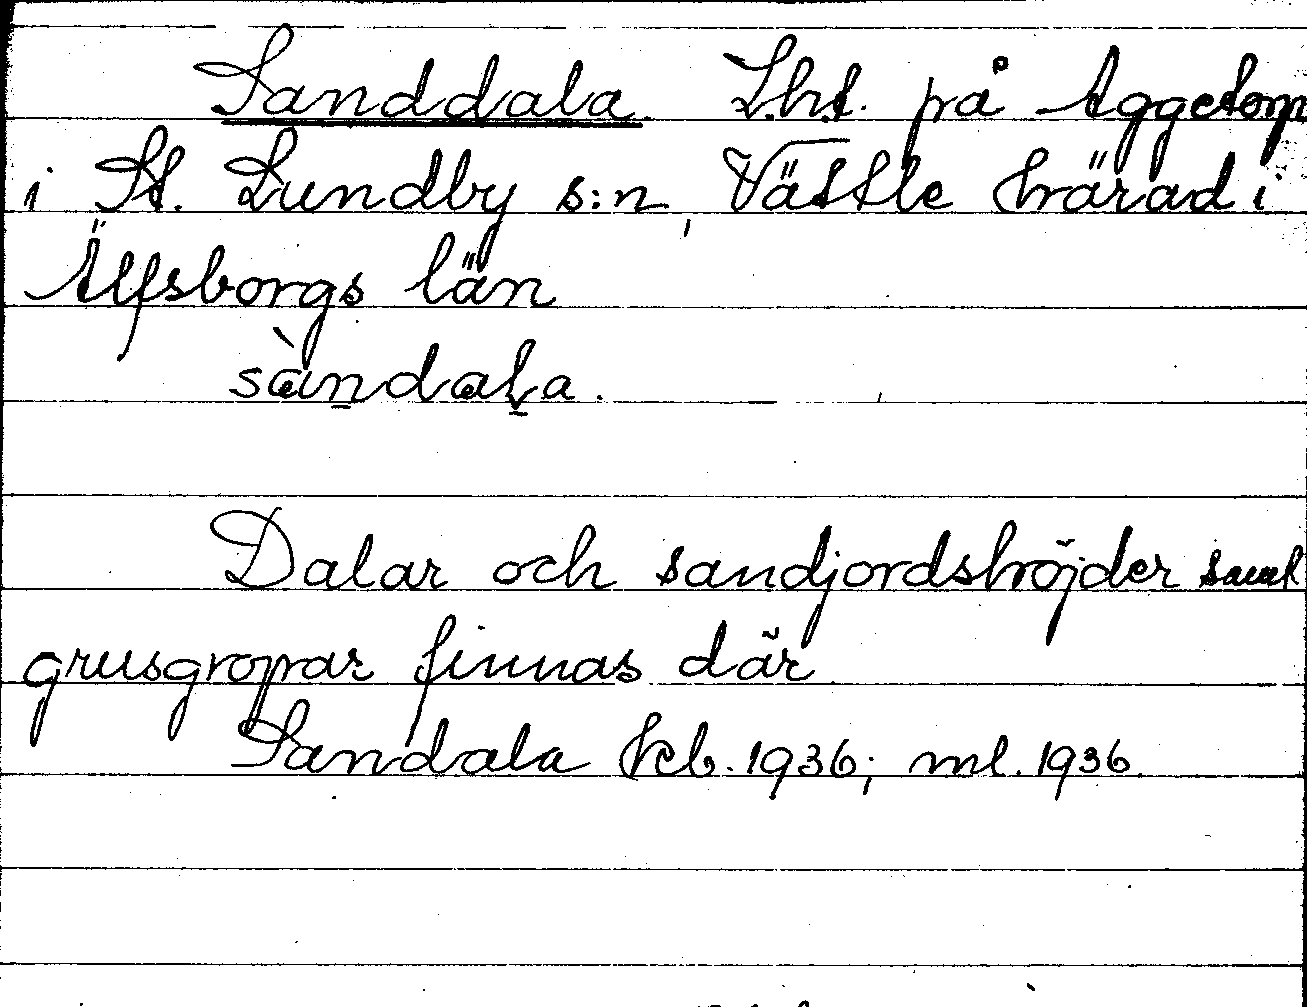 Sanddala. Lht. på Aggetorp
i St. Lundby s:n, Vättle härad i
Älfsborgs län
sàndala.
Dalar och sandjordshöjder samt
grusgropar finnas där
Sandala kb. 1936; ml. 1936.